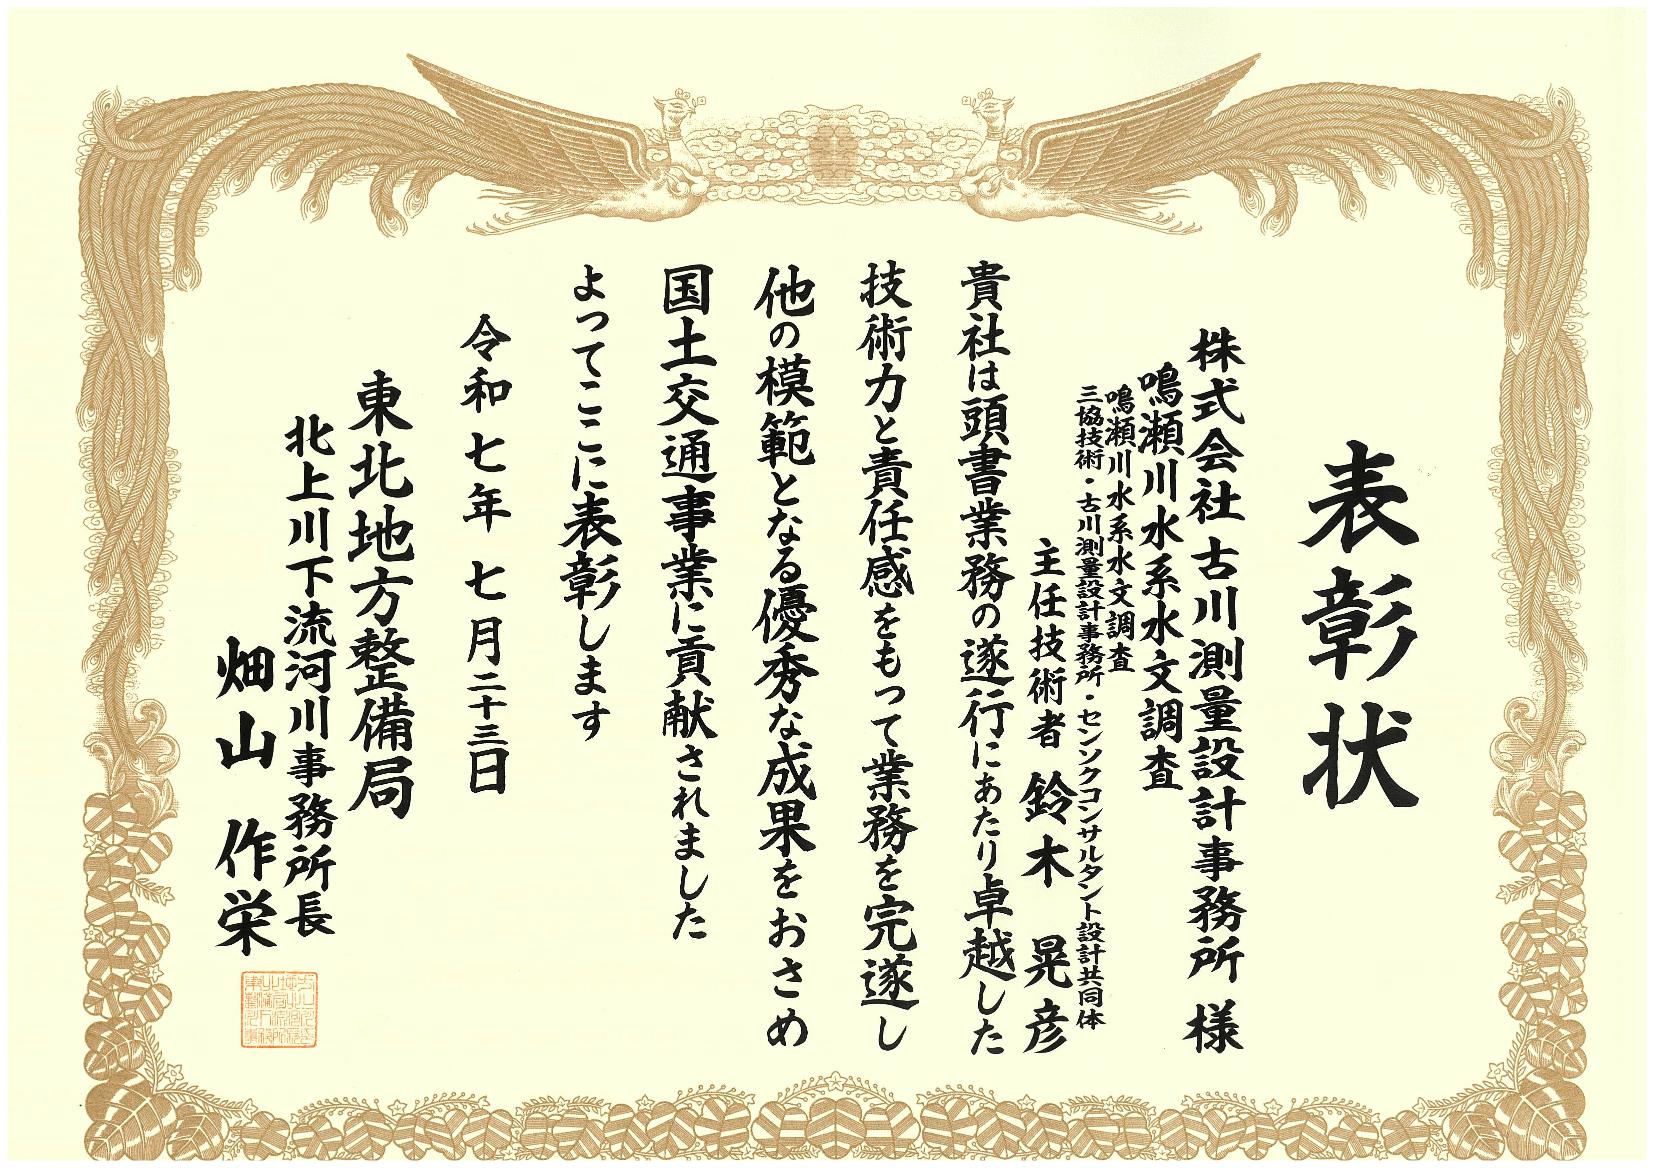 表彰状
株式会社古川測量設計事務所 様
鳴瀬川水系水文調査
鳴瀬川水系水文調査
三協技術・古川測量設計事務所・センソクコンサルタント設計共同体
主任技術者 鈴木 晃彦
貴社は頭書業務の遂行にあたり卓越した
技術力と責任感をもって業務を完遂し
他の模範となる優秀な成果をおさめ
国土交通事業に貢献されました
よってここに表彰します
令和七年七月二十三日
東北地方整備局
北上川下流河川事務所長
畑山 作栄